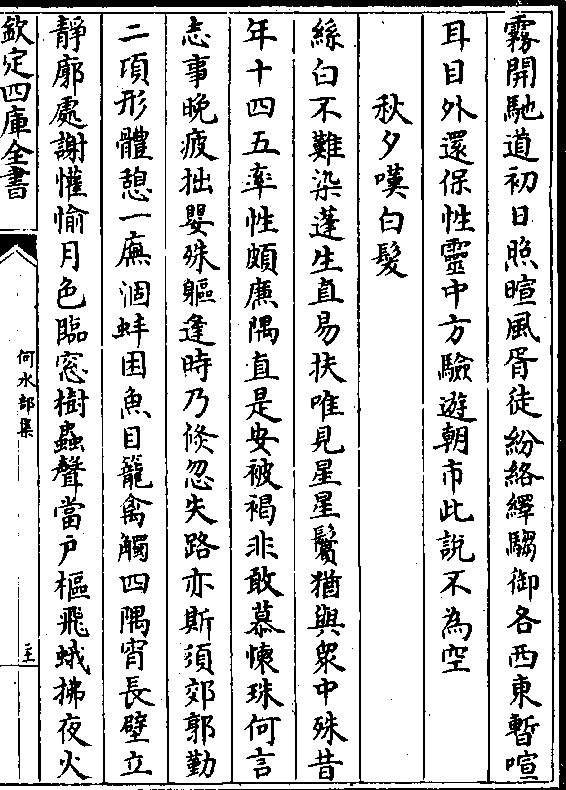 霧開馳道初日照暄風胥徒紛絡繹騶御各西東暫喧
耳目外還保性靈中方驗遊朝市此說不為空
秋夕嘆白髮
絲白不難染蓬生直易扶唯見星星鬢猶與衆中殊昔
年十四五率性頗廉隅直是安被褐非敢慕懷珠何言
志事晚疲拙嬰殊軀逢時乃倏忽失路亦斯須郊郭勤
二項形體憩一廡涸蚌困魚目籠禽觸四隅宵長壁立
靜廓處謝懽愉月色臨窓樹蟲聲當戶樞飛蛾拂夜火
欽定四庫全書
何水部集